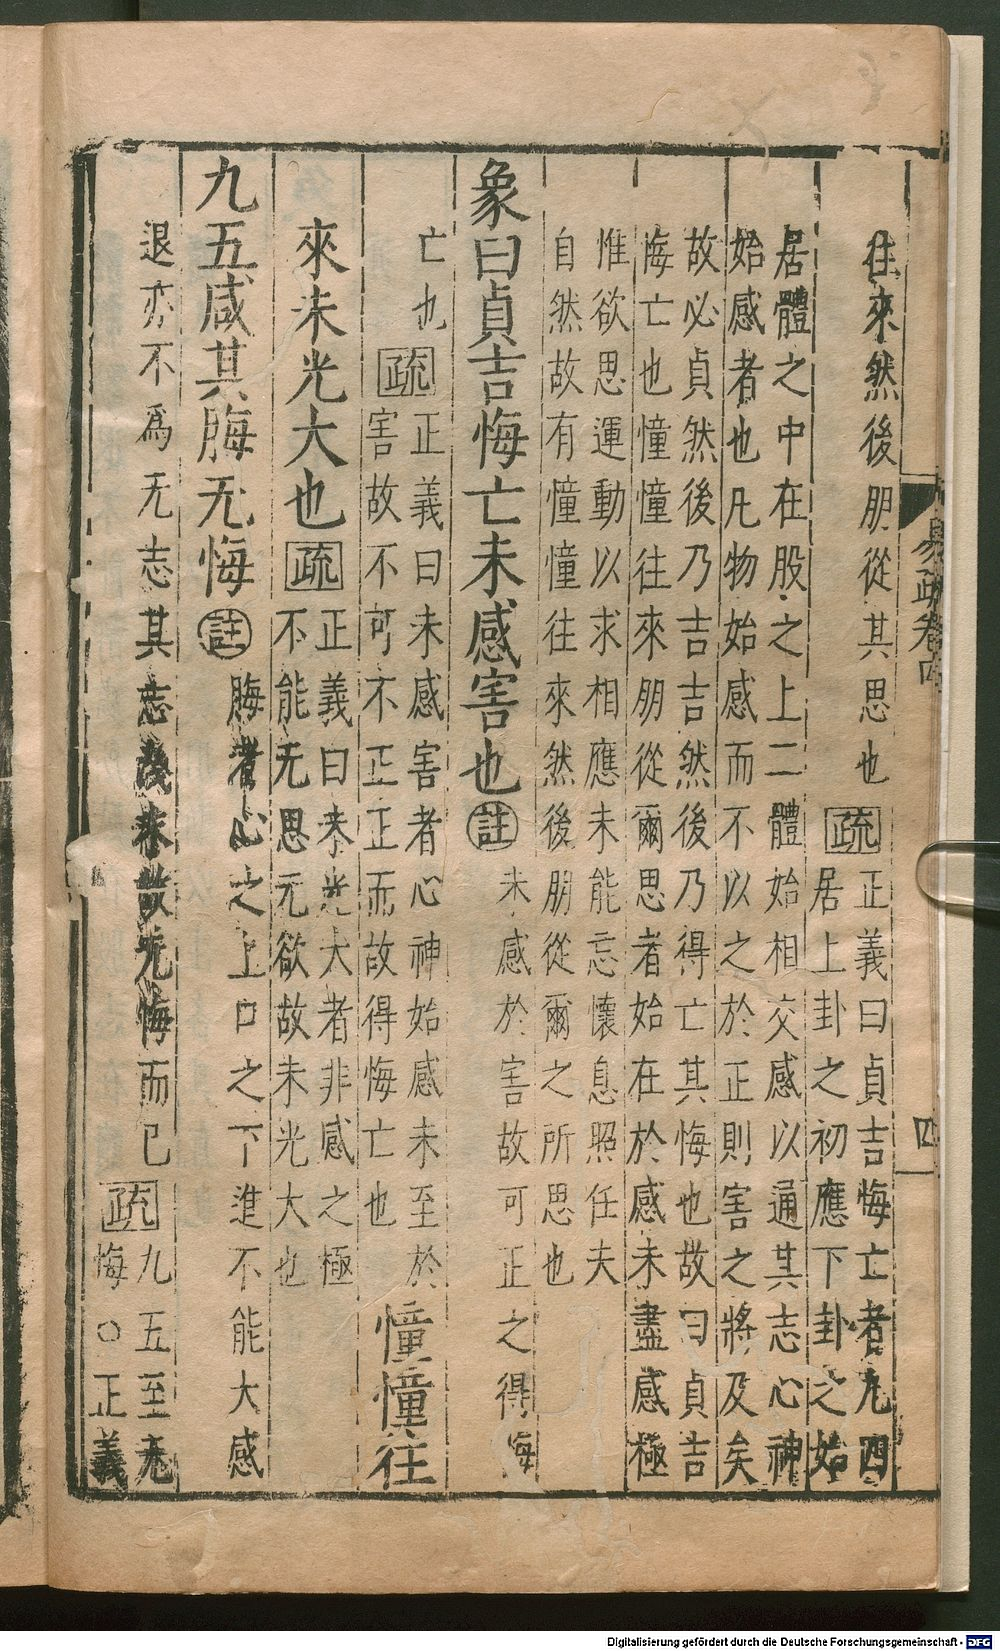 易疏卷四
四
往來然後朋從其思也疏正義曰貞吉悔亡者九四
居上卦之初應下卦之始
居體之中在股之上二體始相交感以通其志心神
始感者也凡物始感而不以之於正則害之將及矣
故必貞然後乃吉吉然後乃得亡其悔也故曰貞吉
悔亡也憧憧往來朋從爾思者始在於感未盡感極
惟欲思運動以求相應未能忘懷息照任夫
自然故有憧憧往來然後朋從爾之所思也
象曰貞吉悔亡未感害也註未感於害故可正之得悔
亡也疏正義曰未感害者心神始感未至於
害故不可不正正而故得悔亡也憧憧往
來未光大也疏正義曰未光大者非感之極
不能无思无欲故未光大也
九五咸其脢无悔註脢者心之上口之下進不能大感
退亦不為无志其志淺末故无悔而已疏九五至无
悔○正義
Digitalisierung gefördert durch die Deutsche Forschungsgemeinschaft - DFG